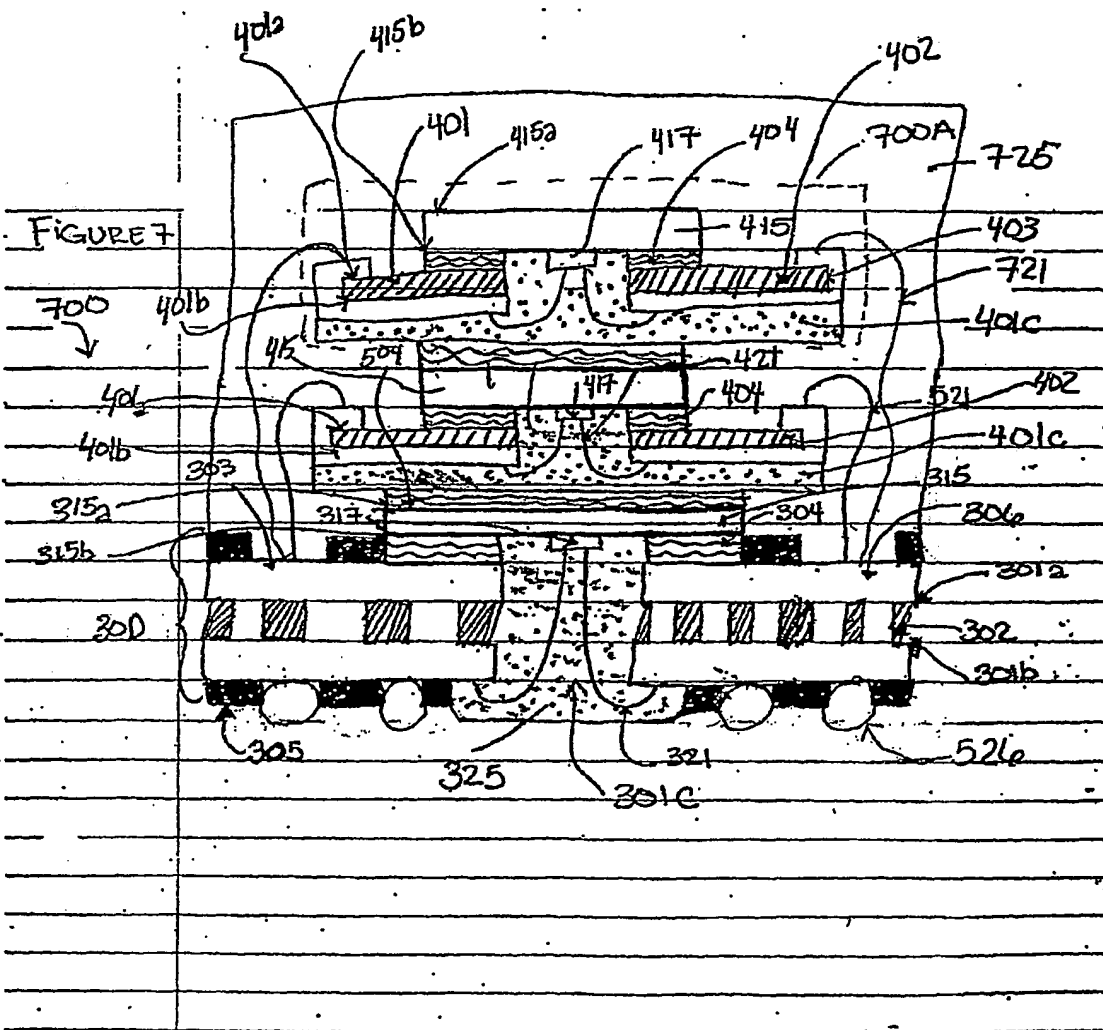 401a 415b
402
401 415a 417 404 700A
725
FIGURE 7
415
403
700
401b
721
401C
415 504 417 421
404 402
401b
521
401C
303
315
315a 317 304
306
315b
301a
300
302
301b
305
325 321 526
301C